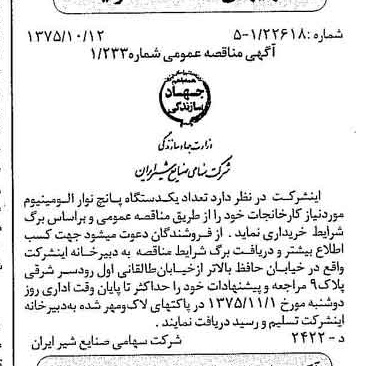 شماره : ۵-۱/۲۲۶۱۸ ۱۳۷۵/۱۰/۱۲
آگهی مناقصه عمومی شماره ۱/۲۳۳
جهاد
سازندگی
وزارت جهاد سازندگی
شرکت سهامی صنایع شیر ایران
اینشرکت در نظر دارد تعداد یکدستگاه پانچ نوار آلومینیوم
موردنیاز کارخانجات خود را از طریق مناقصه عمومی و براساس برگ
شرایط خریداری نماید . از فروشندگان دعوت میشود جهت کسب
اطلاع بیشتر و دریافت برگ شرایط مناقصه به دبیرخانه اینشرکت
واقع در خیابان حافظ بالاتر ازخیابان‌طالقانی اول رودسر شرقی
پلاک ۹ مراجعه و پیشنهادات خود را حداکثر تا پایان وقت اداری روز
دوشنبه مورخ ۱۳۷۵/۱۱/۱ در پاکتهای لاک‌ومهر شده به‌دبیرخانه
اینشرکت تسلیم و رسید دریافت نمایند .
د - ۲۴۲۲ شرکت سهامی صنایع شیر ایران